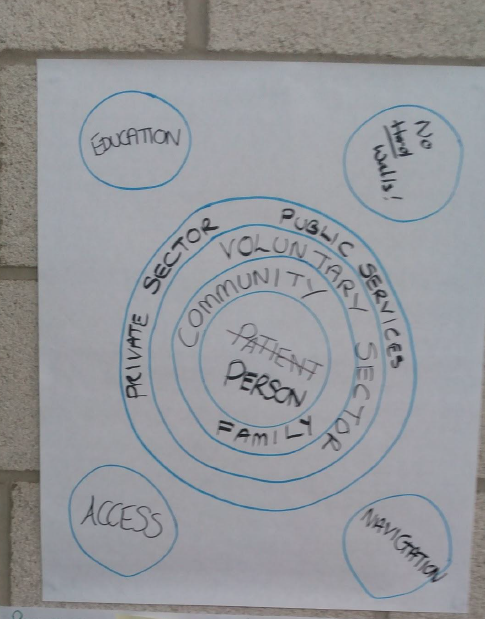 EDUCATION
No
Hard
Walls!
PRIVATE SECTOR
PUBLIC SERVICES
VOLUNTARY SECTOR
COMMUNITY
PATIENT
PERSON
FAMILY
ACCESS
NAVIGATION